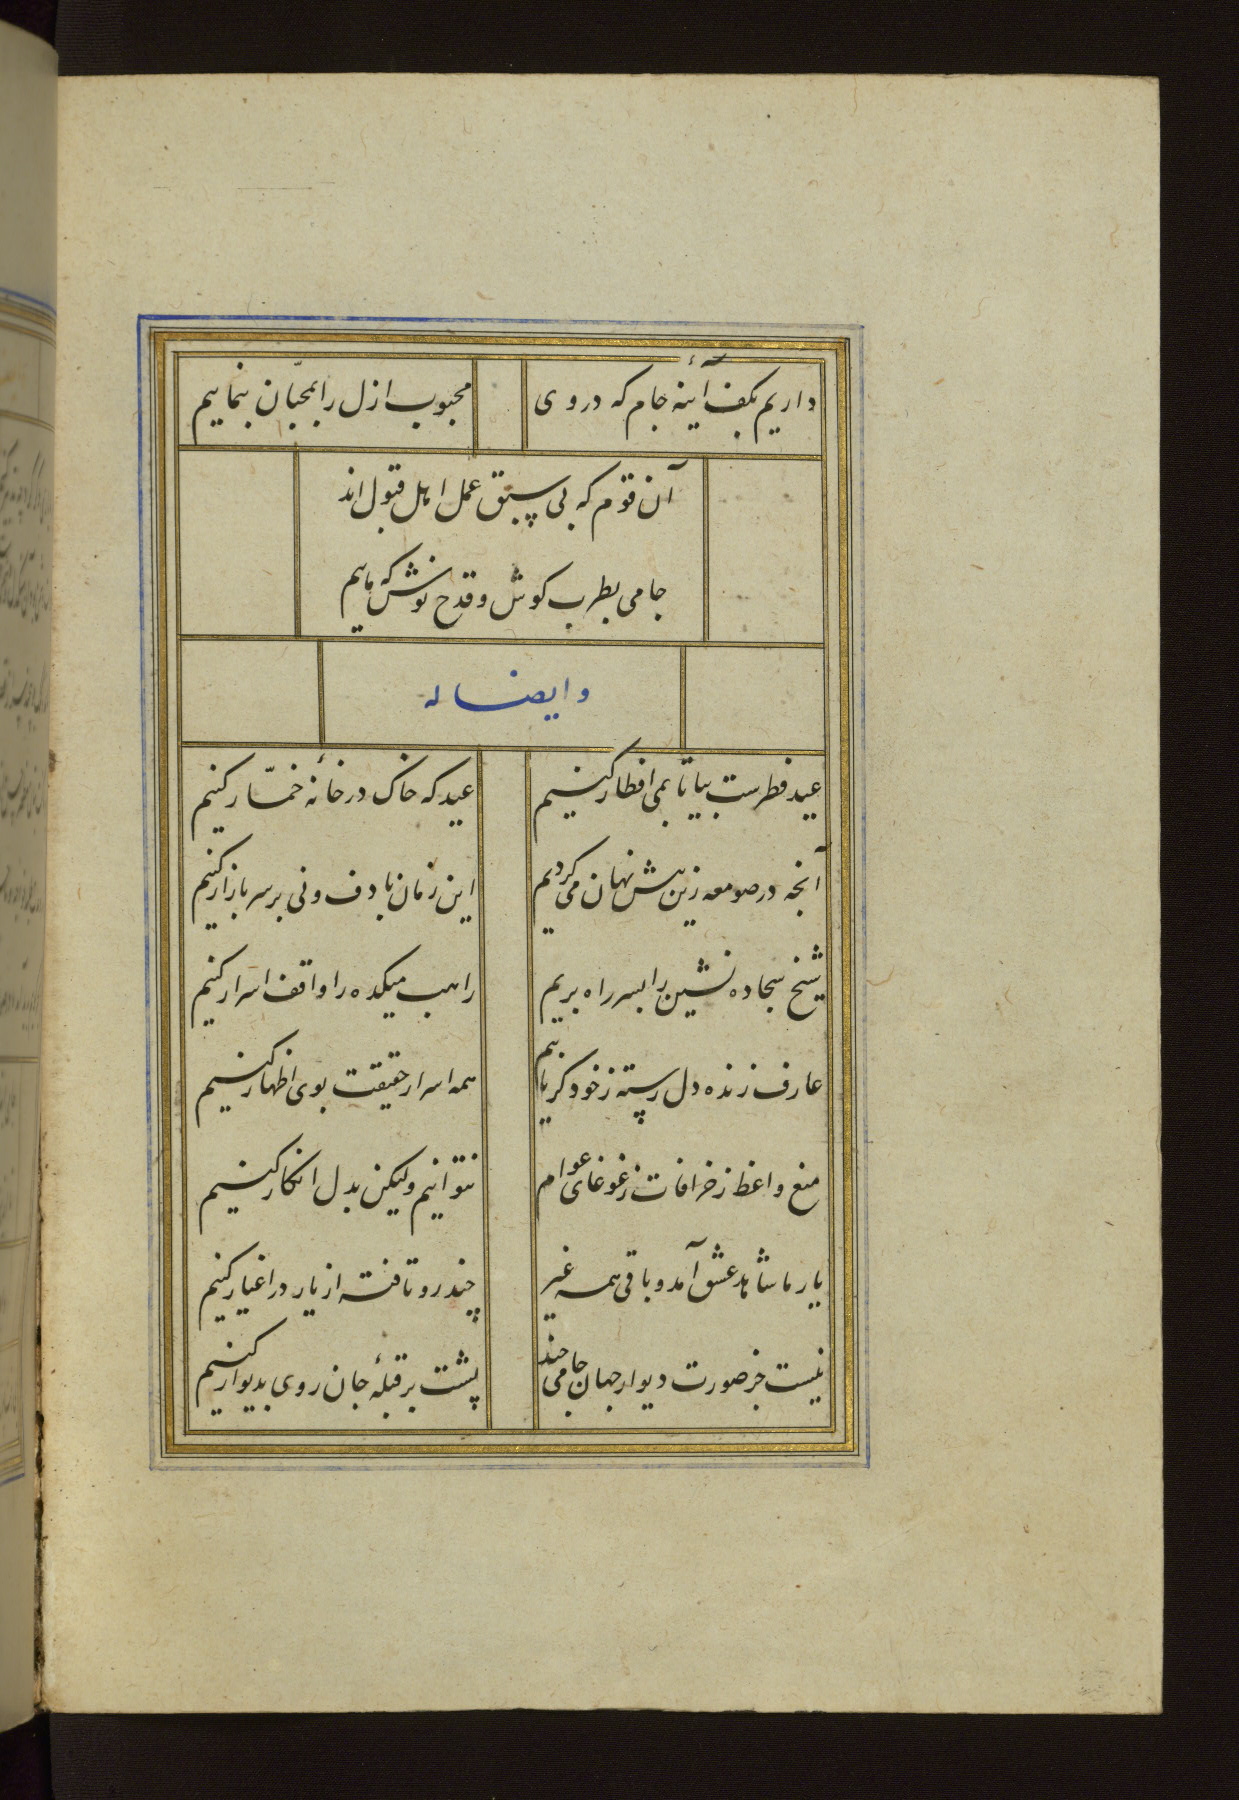 داریم بکف آئینه جام که در وی
محبوب ازل را بمحبّان بنماییم
آن قوم که بی سبق عمل اهل قبول اند
جامی بطرب کوش و قدح نوش که ماییم
وایضا له
عید فطرست بیا تا بمی افطار کنیم
عید که خاک در خانهٔ خمّار کنیم
آنچه در صومعه زین پیش نهان می کردیم
این زمان با دف و نی بر سر بازار کنیم
شیخ سجاده نشین را بسر راه بریم
راهب میکده را واقف اسرار کنیم
عارف زنده دل رسته ز خود کر یابیم
همه اسرار حقیقت بوی اظهار کنیم
منع واعظ ز خرافات ز غوغای عوام
نتوانیم ولیکن بدل انکار کنیم
یار ما شاهد عشق آمد و باقی همه غیر
چند رو تافته از یار در اغیار کنیم
نیست جز صورت دیوار جهان جامی چند
پشت بر قبلهٔ جان روی بدیوار کنیم